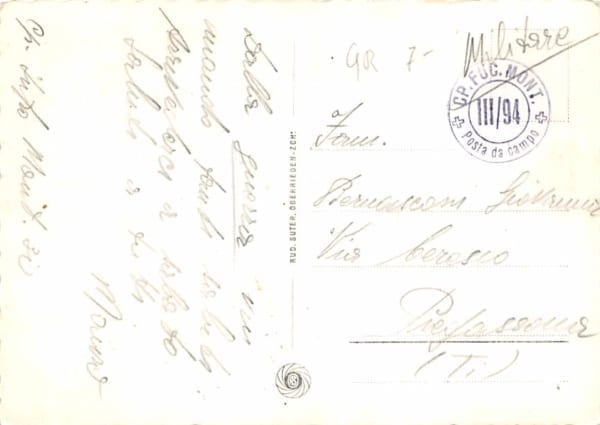 GR 7-
Militare
CP. FUC. MONT.
III/94
Posta da campo
Fam.
Bernasconi Giovanni
Via Ceresio
Pregassona
(Ti)
RUD. SUTER, OBERRIEDEN-ZCH.
Dalla guerra vi
mando tanti saluti
arrivederci a sabato
Saluti a tutti
Cp. fuc. Mont.